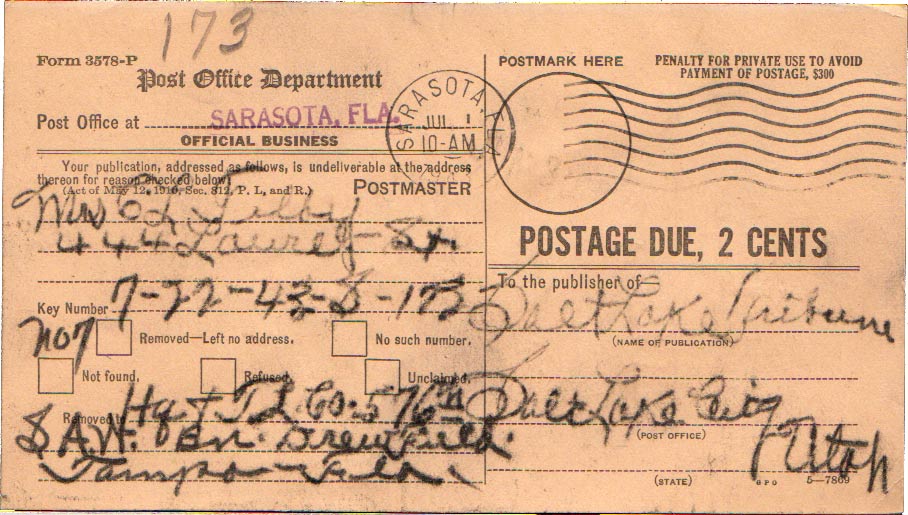 173
Form 3578-P
Post Office Department
Post Office at SARASOTA, FLA.
OFFICIAL BUSINESS
Your publication, addressed as follows, is undeliverable at the address
thereon for reason checked below
(Act of May 12, 1910, Sec. 312, P. L., and R.)
POSTMASTER
Mrs
444 Laurel St.
Key Number 7-22-43-S-173
Not
Removed—Left no address.
No such number.
Not found.
Refused.
Unclaimed.
Removed to Hq & Co. 576th
S.A.W. Bn. Drew Field.
Tampa Fla.
SARASOTA, FLA.
JUL 1
10-AM
POSTMARK HERE
PENALTY FOR PRIVATE USE TO AVOID
PAYMENT OF POSTAGE, $300
POSTAGE DUE, 2 CENTS
To the publisher of—
Salt Lake Tribune
(NAME OF PUBLICATION)
Salt Lake City
(POST OFFICE)
Utah
(STATE)
GPO
5—7869